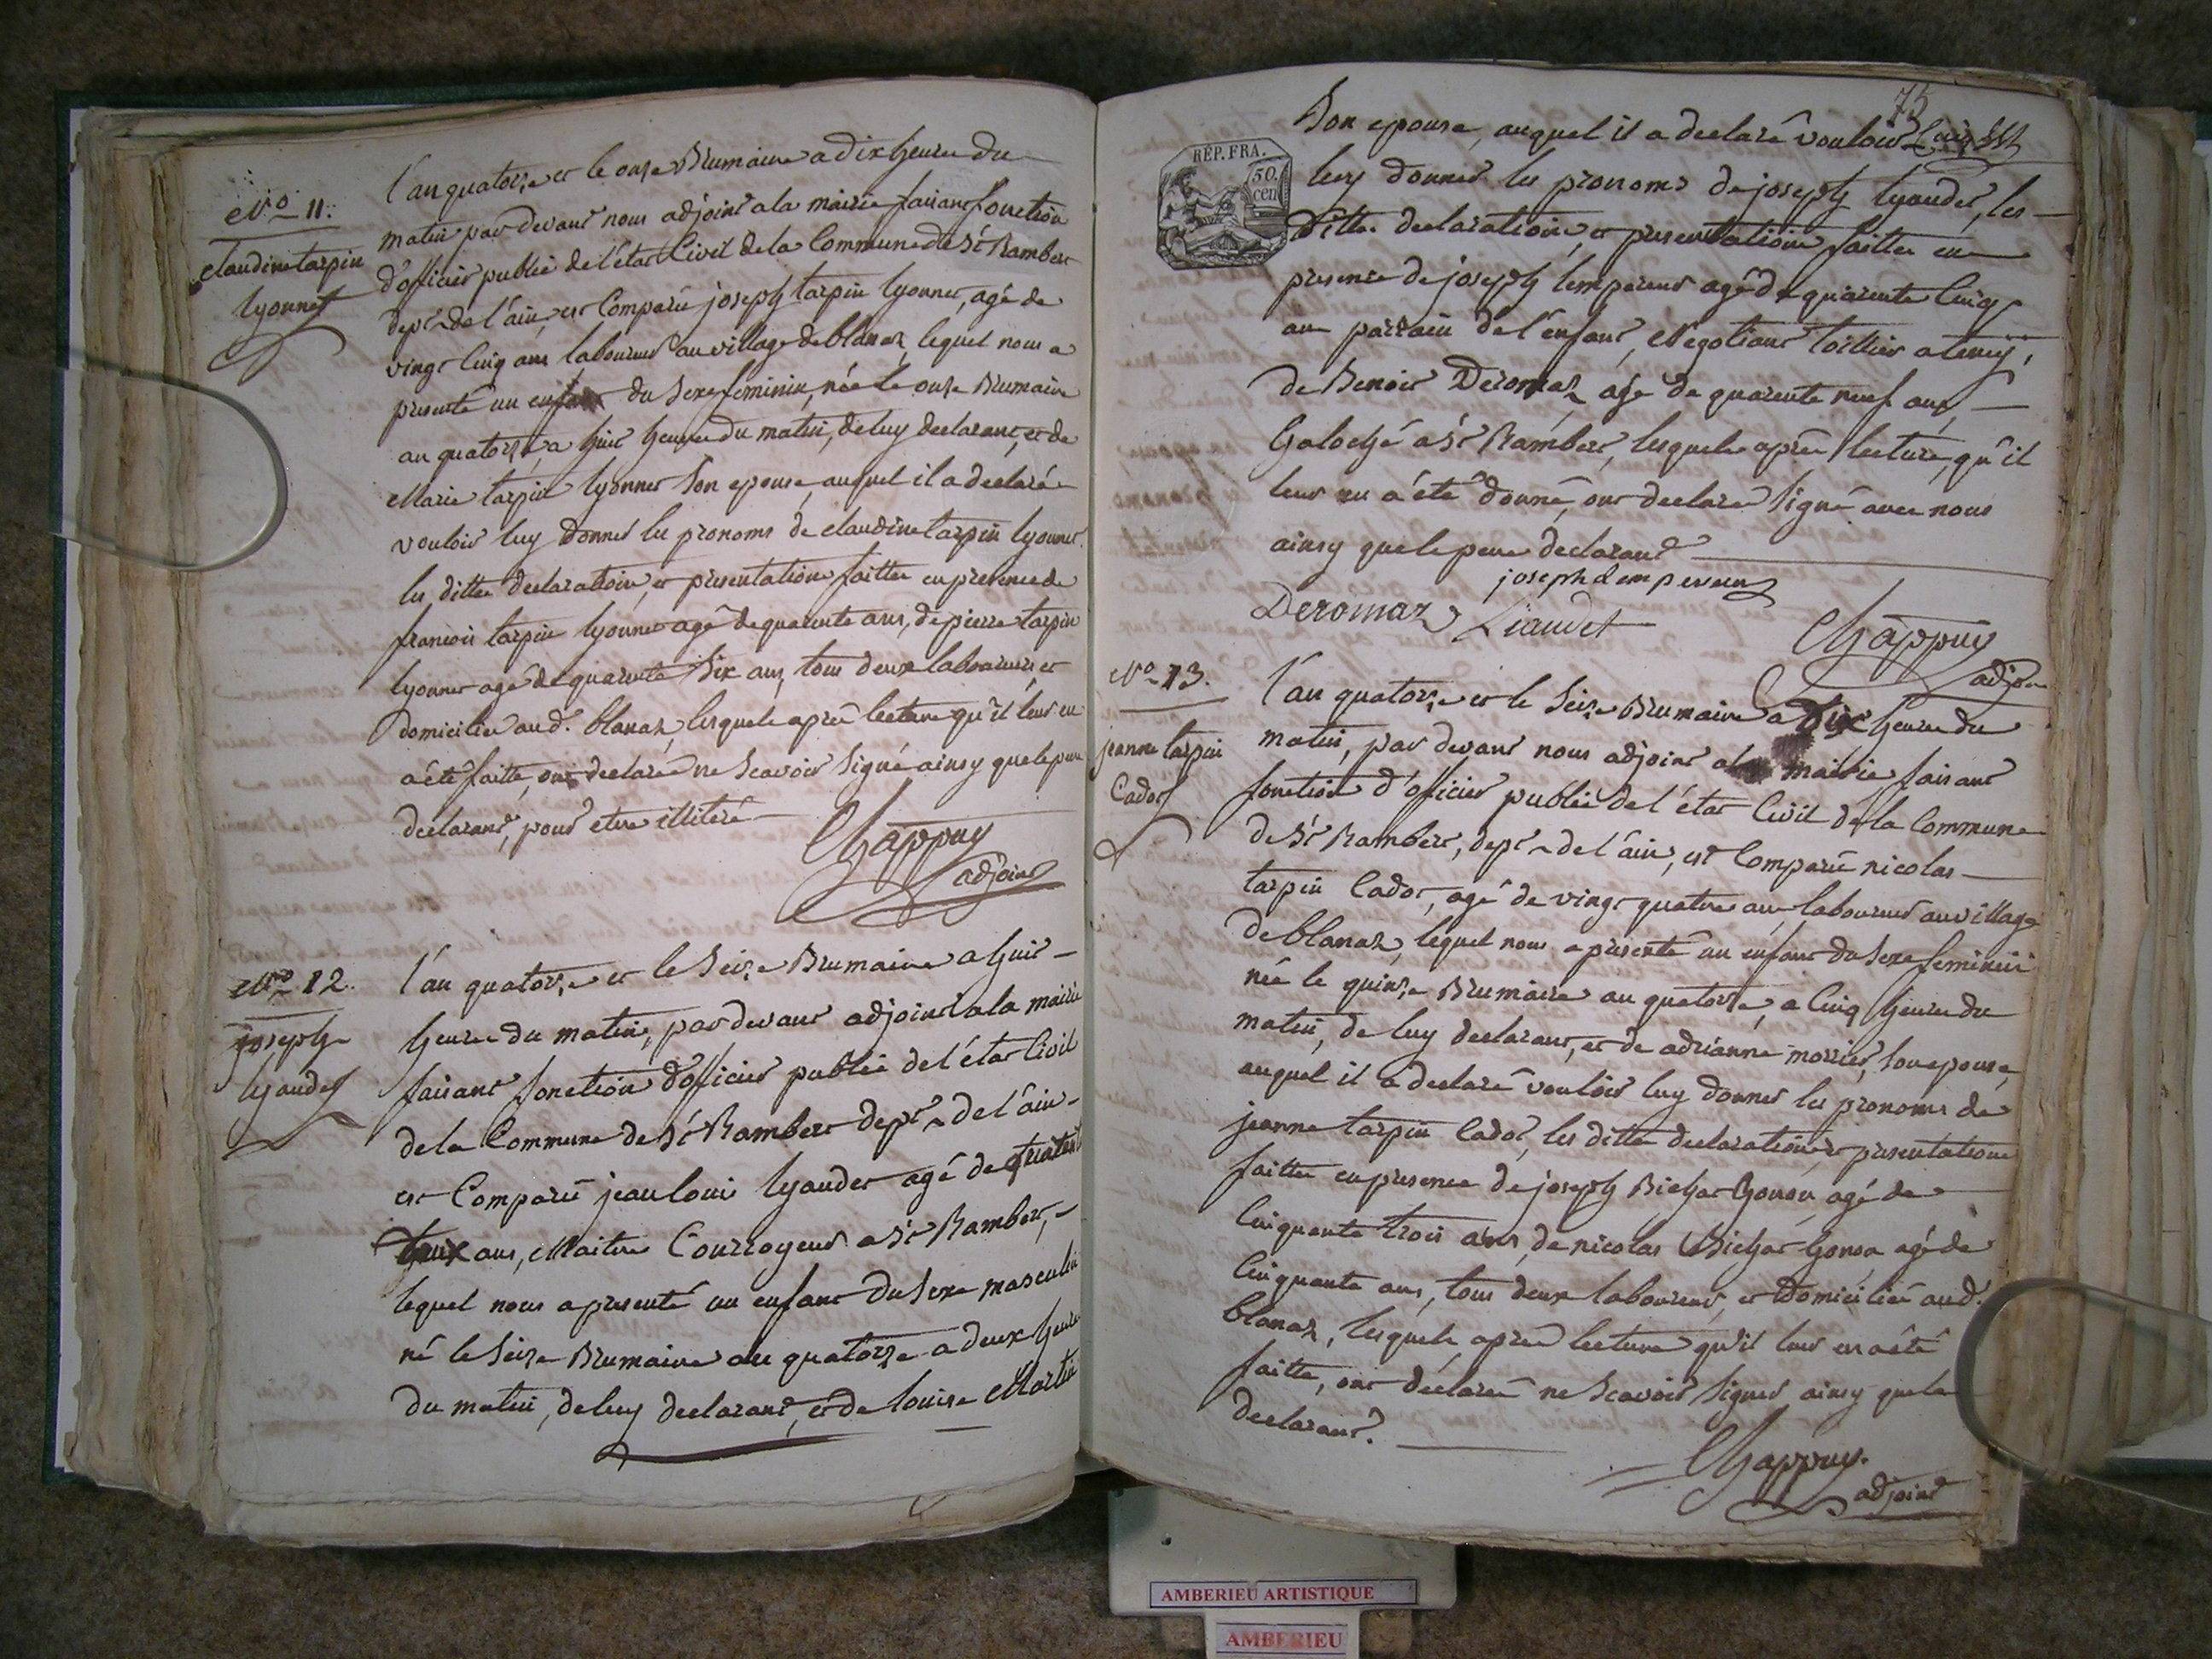 No 11.
claudine tarpin
lyonnet
l'an quatorze et le onze Brumaire a dix heures du
matin par devant nous adjoint a la mairie faisant fonction
d'officier public de l'état Civil de la Commune de St Rambert
dept de l'ain, est Comparu joseph tarpin lyonnet, agé de
vingt cinq ans laboureur au village de blanaz, lequel nous a
presenté un enfant du sexe feminin, née le onze Brumaire
an quatorze, a huit heures du matin, de luy declarant, et de
Marie tarpin lyonnet son epouse, auquel il a declaré
vouloir luy donner les pronoms de claudine tarpin lyonnet
les dittes declaration, et presentation faittes en presence de
francois tarpin lyonnet agé de quarante ans, de pierre tarpin
lyonnet agé de quarante six ans, tous deux laboureurs, et
domiciliés aud. blanaz, lesquels aprés lecture qu'il leur en
a été faitte, ont declaré ne scavoir signé ainsy que le pere
declarant, pour etre illiteré
Chappuy
adjoint
No 12.
joseph
lyaudet
l'an quatorze et le seize Brumaire a huit
heures du matin, par devant adjoint a la mairie
faisant fonction d'officier public de l'état Civil
de la Commune de St Rambert dept de l'ain
est Comparu jean louis lyaudet agé de
ans, Maitre Courroyeur a St Rambert,
lequel nous a presenté un enfant du sexe masculin
né le seize Brumaire an quatorze a deux heures
du matin, de luy declarant, et de louise Martin
75
son epouse, auquel il a declaré vouloir
luy donner les pronoms de joseph lyaudet, les
dittes declaration, et presentation faittes en
presence de joseph lempereur agé de quarente cinq
ans parrain de l'enfant, Negotiant toillier a tenay,
de Benoit Deromaz agé de quarente neuf ans,
Galoché a St Rambert, lesquels aprés lecture, qu'il
leur en a été donné, ont declaré signé avec nous
ainsy que le pere declarant
joseph lempereur
Deromaz Liaudet
Chappuy
adjoint
REP. FRA.
50.
cen
No 13.
jeanne tarpin
Cador
l'an quatorze et le seize Brumaire a dix heures du
matin, par devant nous adjoint a la mairie faisant
fonction d'officier public de l'état Civil de la Commune
de St Rambert, dept de l'ain, est Comparu nicolas
tarpin Cador, agé de vingt quatre ans laboureur au village
de blanaz, lequel nous a presenté un enfant du sexe feminin
née le quinze Brumaire an quatorze, a cinq heures du
matin, de luy declarant, et de adrianne morrier, son epouse,
auquel il a declaré vouloir luy donner les pronoms de
jeanne tarpin Cador, les dittes declaration et presentation
faittes en presence de joseph Bichat Gonon, agé de
cinquante trois ans, de nicolas Bichat Gonon agé de
cinquante ans, tous deux laboureurs, et domiciliés aud.
blanaz, lesquels, aprés lecture qu'il leur en a été
faitte, ont declaré ne scavoir signer ainsy que le
declarant.
Chappuy.
adjoint
AMBERIEU ARTISTIQUE
AMBERIEU